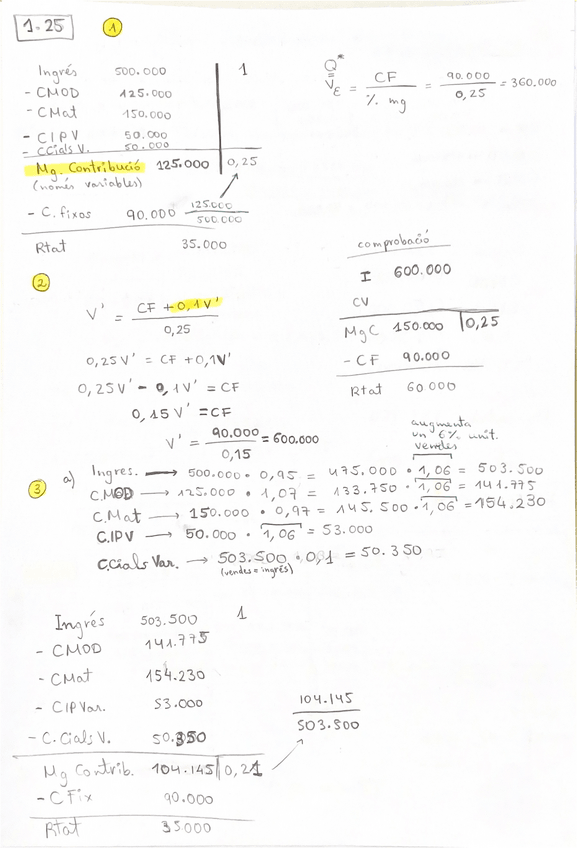 1.25 1
Ingrés 500.000 1
- CMOD 125.000
- CMat 150.000
- CIPV 50.000
- CCials V. 50.000
Mg. Contribució 125.000 0,25
(només variables)
125.000
500.000
- C. fixos 90.000
Rtat 35.000
Q*
=
VE = CF / % mg = 90.000 / 0,25 = 360.000
2
V' = CF + 0,1V' / 0,25
0,25V' = CF + 0,1V'
0,25V' - 0,1V' = CF
0,15V' = CF
V' = 90.000 / 0,15 = 600.000
comprobació
I 600.000
CV
MgC 150.000 0,25
- CF 90.000
Rtat 60.000
augmenta
un 6% unit.
venudes
3 a) Ingres. → 500.000 · 0,95 = 475.000 · 1,06 = 503.500
C.MOD → 125.000 · 1,07 = 133.750 · 1,06 = 141.775
C.Mat → 150.000 · 0,97 = 145.500 · 1,06 = 154.230
C.IPV → 50.000 · 1,06 = 53.000
C.Cials Var. → 503.500 · 0,1 = 50.350
(vendes = ingrés)
Ingrés 503.500 1
- CMOD 141.775
- CMat 154.230
- CIPVar. 53.000
- C.Cials V. 50.350
Mg Contrib. 104.145 0,21
104.145
503.500
- C Fix 90.000
Rtat 35000